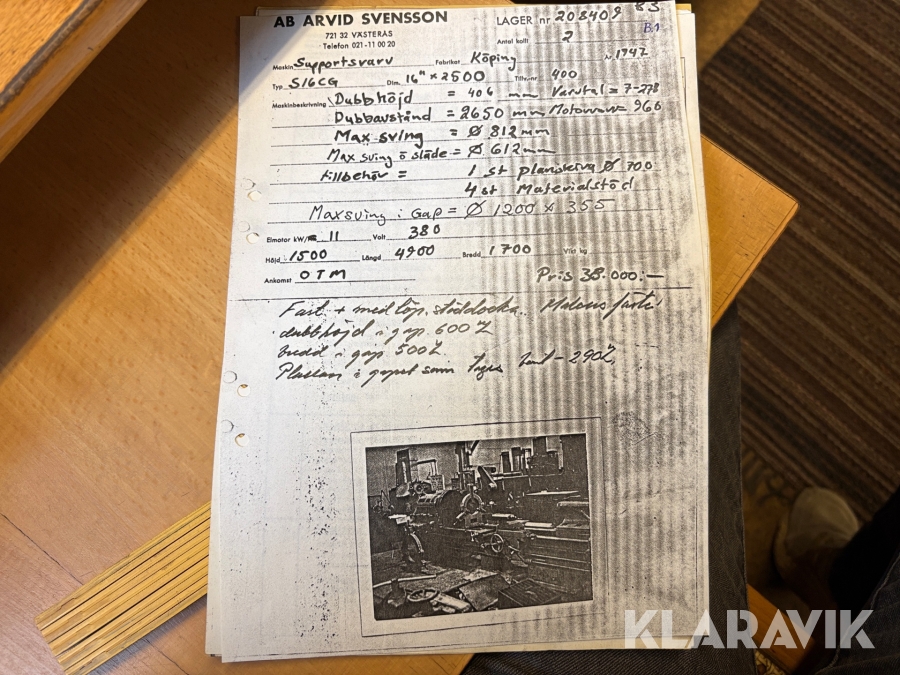 AB ARVID SVENSSON LAGER nr 208409 83
721 32 VÄSTERÅS B1
Telefon 021-11 00 20 Antal kolli 2
Maskin Supportsvarv Fabrikat Köping År 1942
Typ S16CG Dim. 16" x 2500 Tillv.nr 400
Maskinbeskrivning Dubbhöjd = 406 mm Varvtal = 7-278
Dubbavstånd = 2650 mm 960
Max sving = Ø 812 mm
Max sving ö släde = Ø 612 mm
tillbehör = 1 st planskiva Ø 700
4 st Materialstöd
Max sving i Gap = Ø 1200 x 355
Elmotor kW/ 11 Volt 380
Höjd 1500 Längd 4900 Bredd 1700 Vikt kg
Ankomst OTM Pris 38.000:-
Fast + med löp. stöddocka.
dubbhöjd i gap 600
bredd i gap 500
i gapet som 290
KLARAVIK